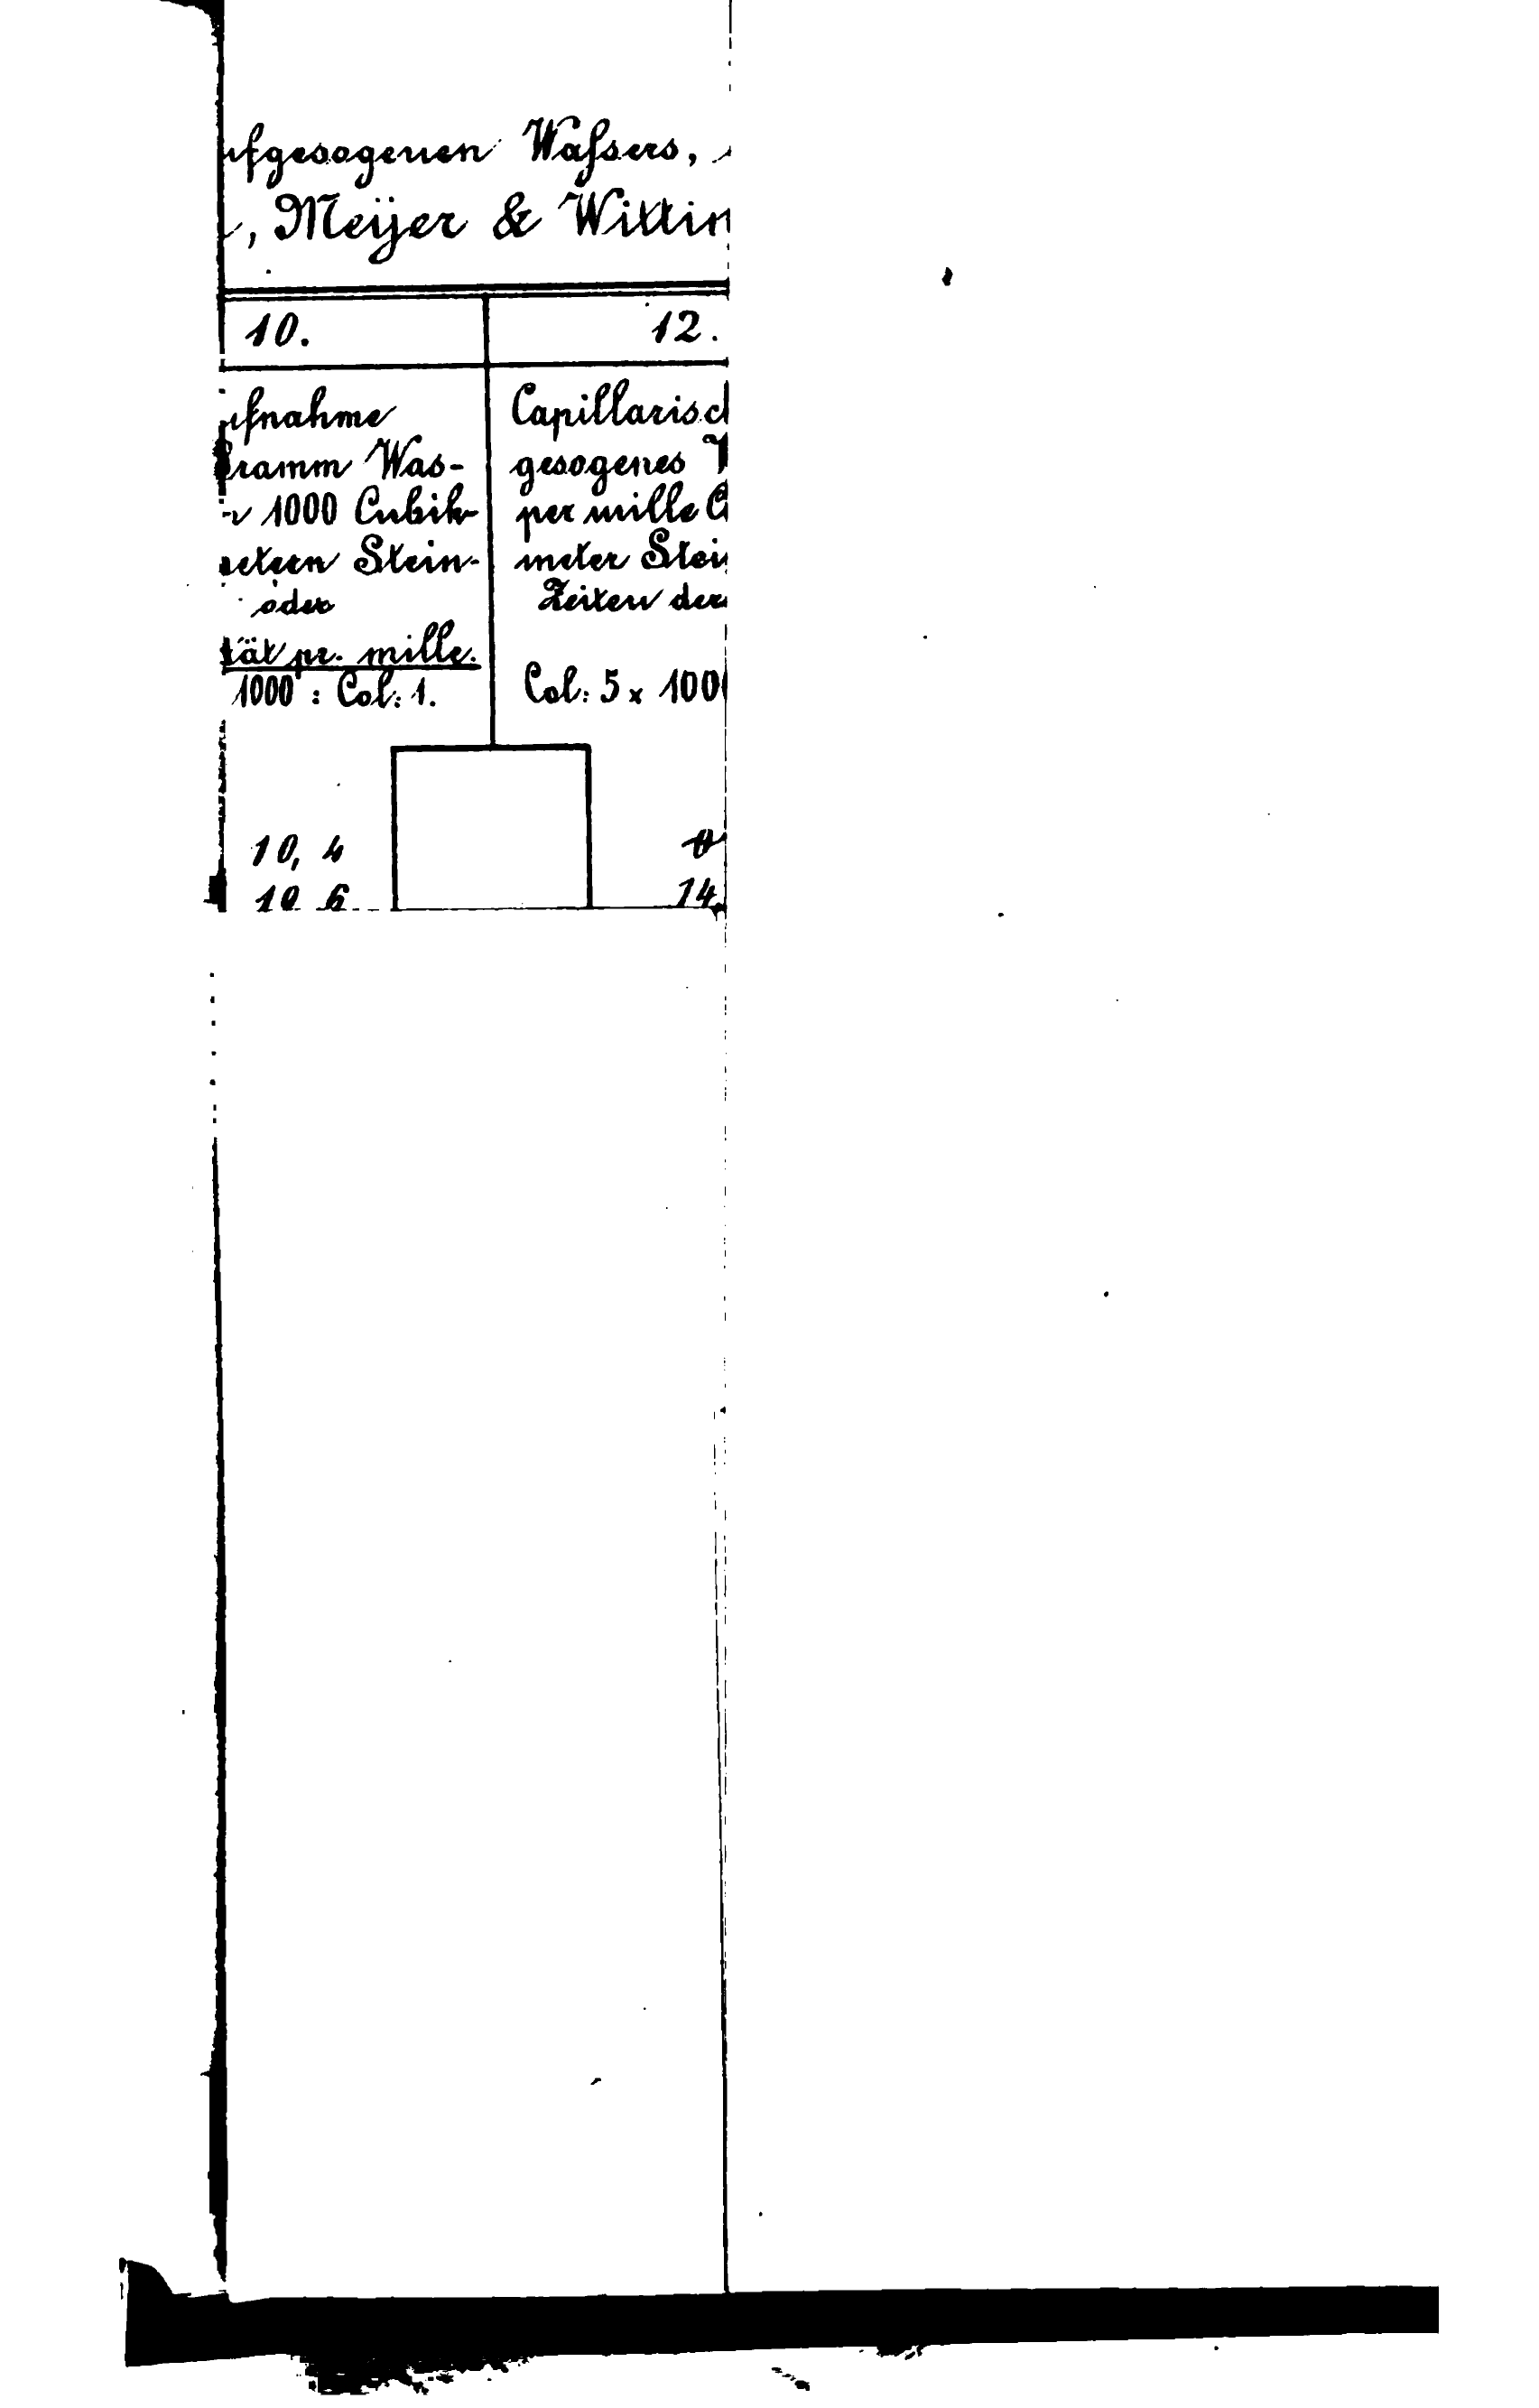 ufgesogenen Waſsers,
, Meijer & Wittin
10.
12.
ufnahme
Gramm Was-
1000 Cubik-
etern Stein-
oder
tät pr. mille.
1000 : Col. 1.
Capillarisch
gesogenes
per mille C
meter Stein
Zeiten der
Col: 5 x 100
10, 4
0
10 6
14